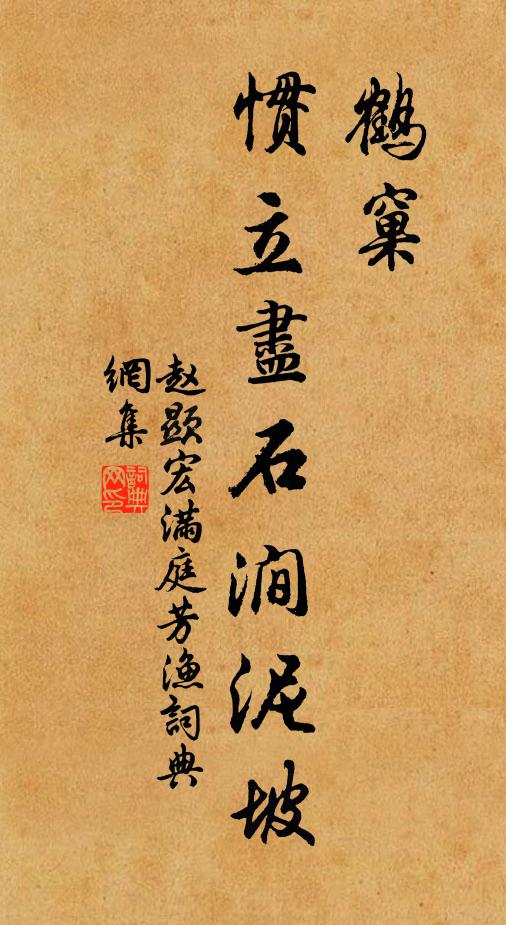 鶴窠
慣立盡石澗泥坡
赵顯宏满庭芳漁詞典
網集
詞典網印